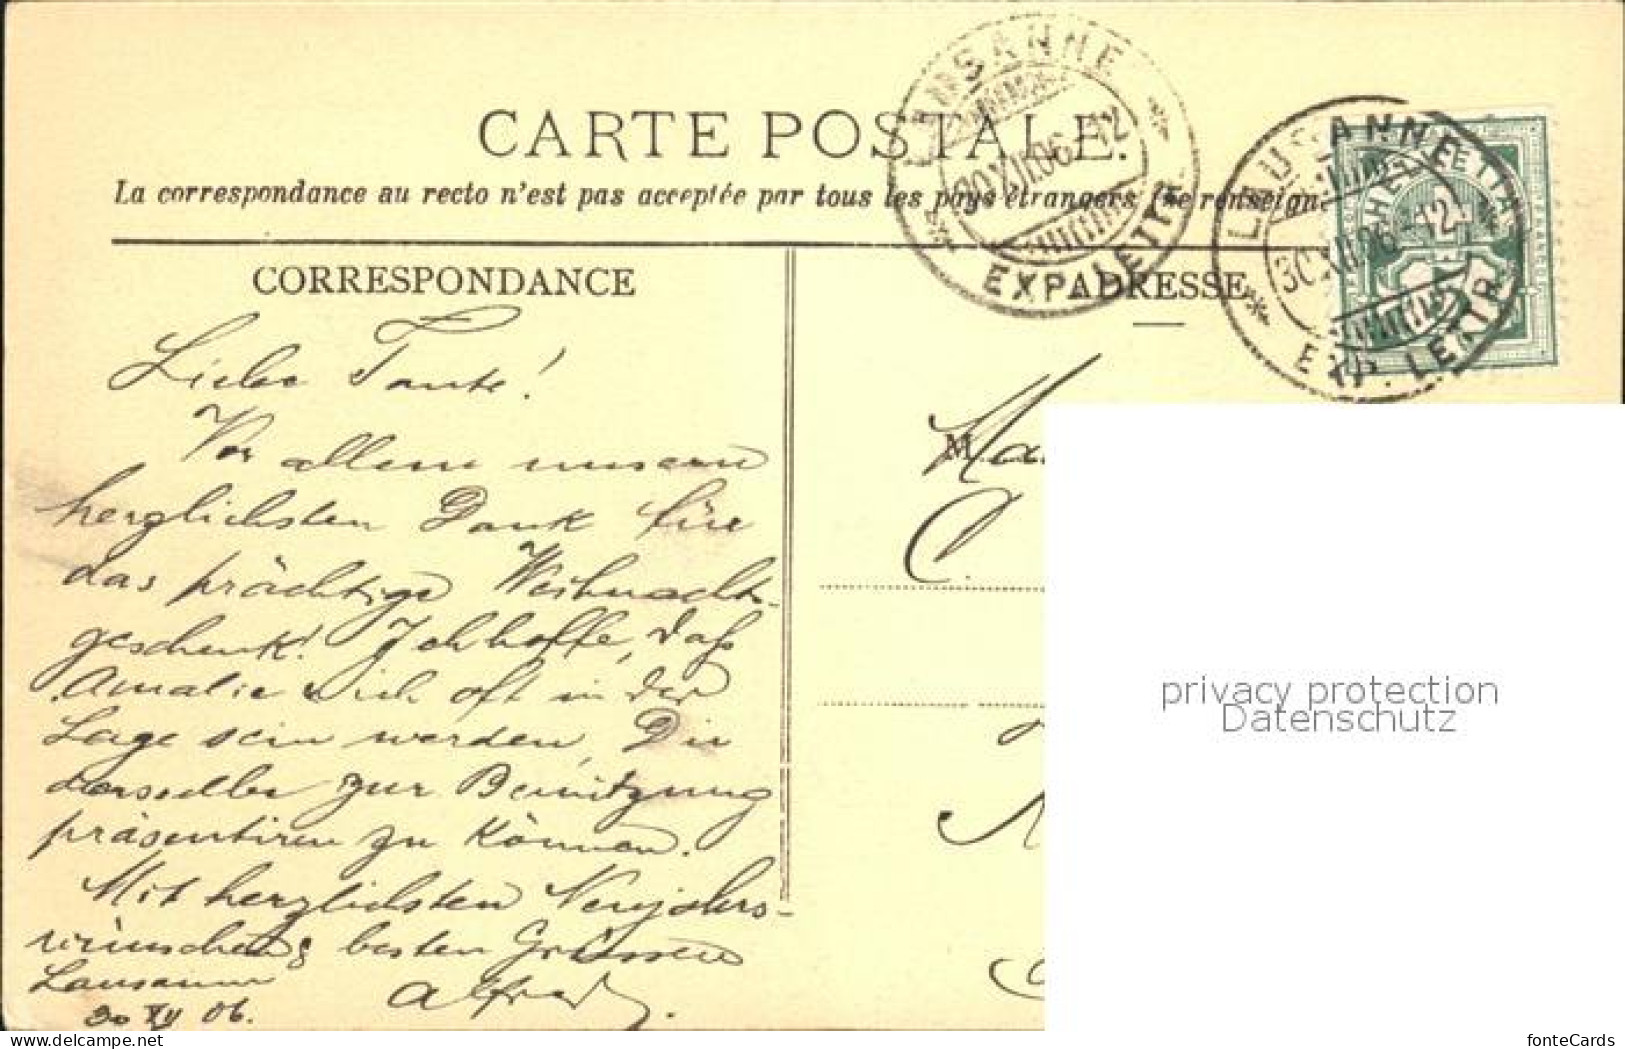 CARTE POSTALE.
La correspondance au recto n'est pas acceptée par tous les pays étrangers (Se renseign
CORRESPONDANCE
ADRESSE
LAUSANNE
30 XII 06 - 12
EXP. LETTR.
LAUSANNE
30 XII 06 - 12
EXP. LETTR.
HELVETIA
FRANCO
Liebe Tante!
Vor allem unsern
herzlichsten Dank für
das prächtige Weihnachts-
geschenk! Ich hoffe, dass
Amalie & ich oft in der
Lage sein werden, Dir
dasselbe zur Benützung
präsentiren zu können.
Mit herzlichsten Neujahrs-
wünschen & besten Grüssen
Lausanne
Alfred.
30 XII 06.
M
privacy protection
Datenschutz
fonteCards
delcampe.net